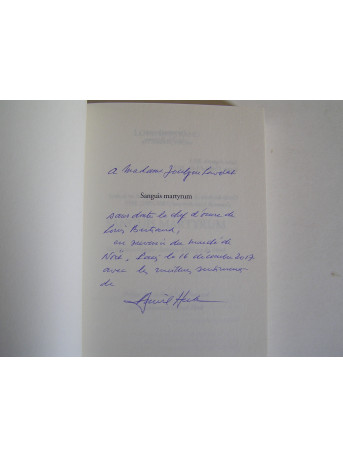 a Madame
Sanguis martyrum
sans doute le chef d'œuvre de
Louis Bertrand,
en souvenir du marché de
Noël. Paris le 16 décembre 2017
avec les meilleurs sentiments
de